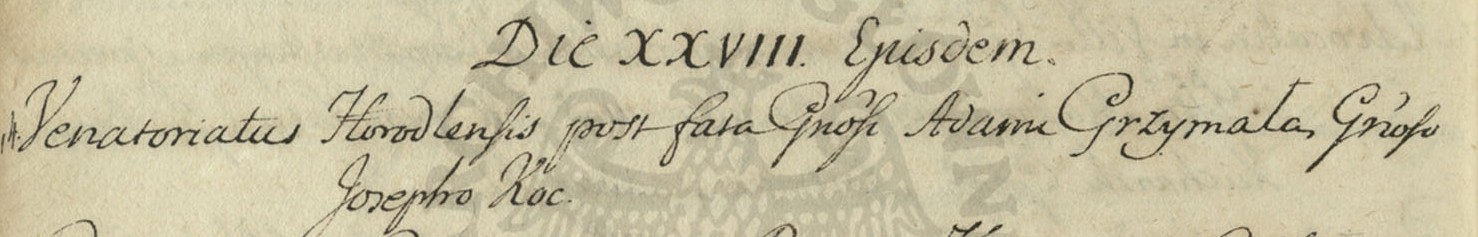 Die XXVIII. Ejusdem.
Venatoriatus Horodlensis post fata Gnosi Adami Grzymała, Gnoso
Josepho Koc.